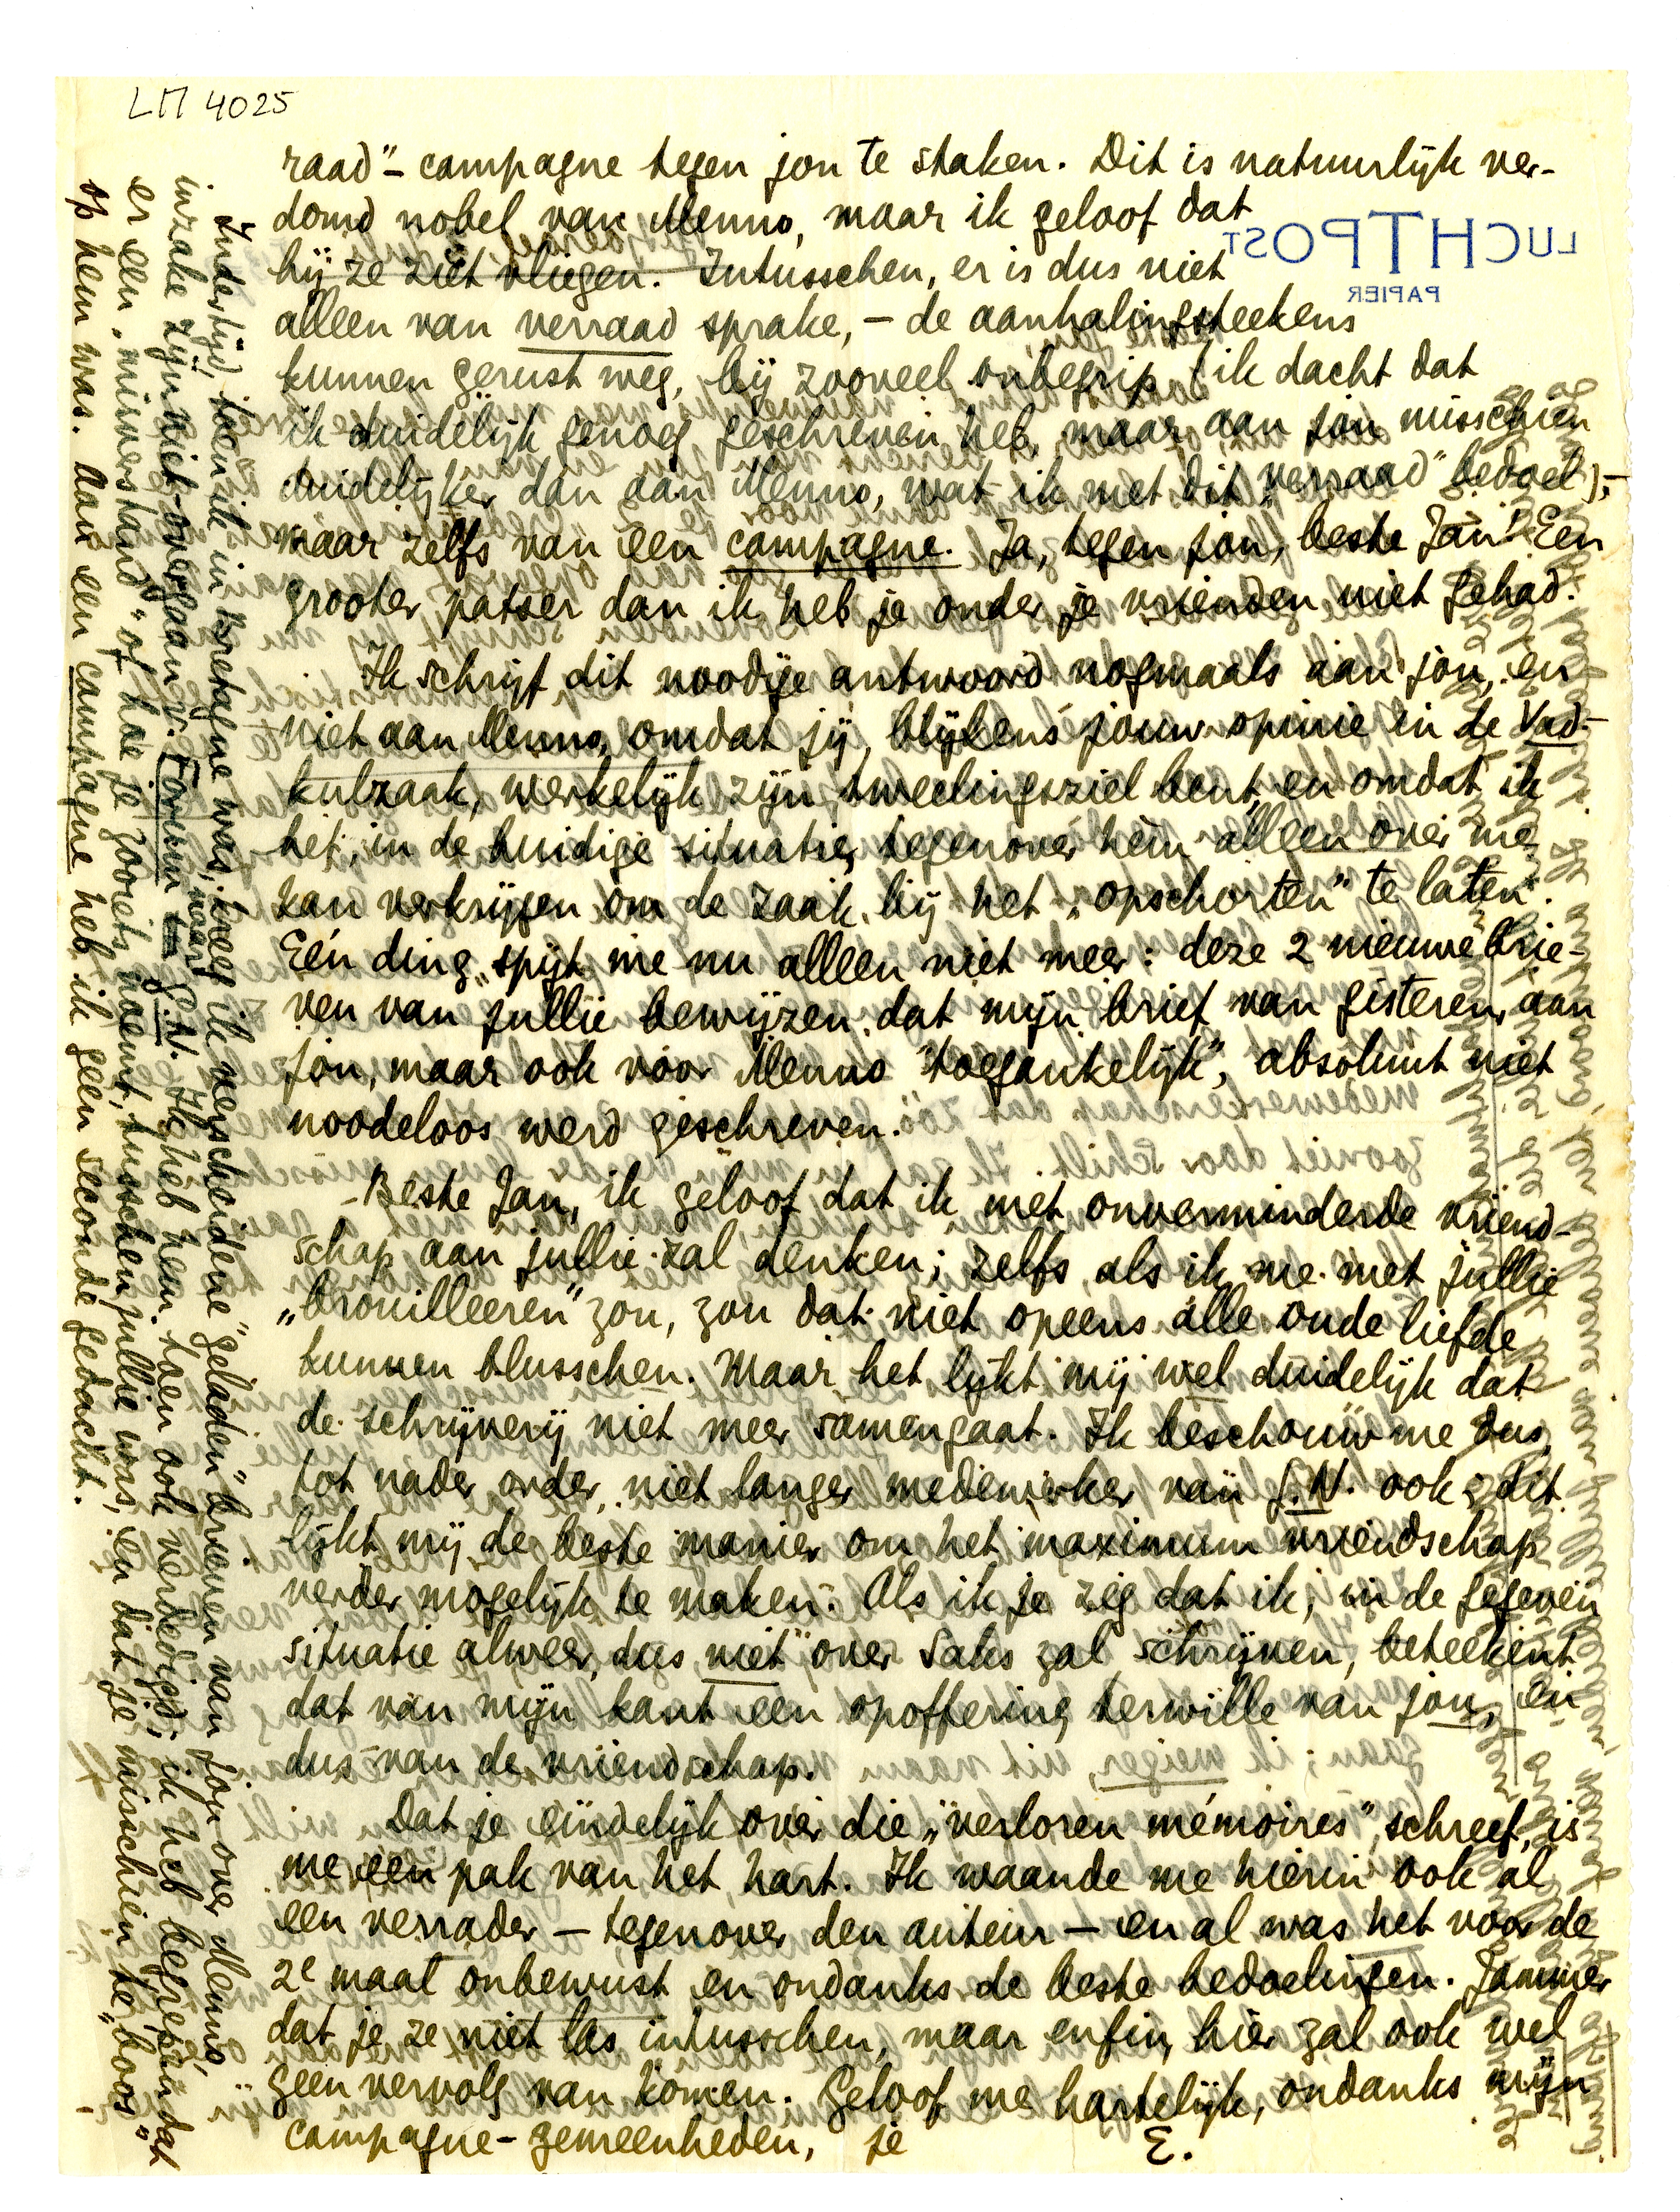 LM 4025
raad"- campagne tegen jou te staken. Dit is natuurlijk ver-
domd nobel van Menno, maar ik geloof dat
hij ze ziet vliegen. Intusschen, er is dus niet
alleen van verraad sprake, - de aanhalingsteekens
kunnen gerust weg, bij zooveel onbegrip (ik dacht dat
ik duidelijk genoeg geschreven heb, maar aan jou misschien
duidelijker dan aan Menno, wat ik met dit „verraad" bedoel), -
maar zelfs van een campagne. Ja, tegen jou, beste Jan! Een
grooter patser dan ik heb je onder je vrienden niet gehad.
Ik schrijf dit noodige antwoord nogmaals aan jou, en
niet aan Menno, omdat jij, blijkens jouw opinie in de Vad-
kulzaak, werkelijk zijn tweelingsziel bent, en omdat ik
het, in de huidige situatie, tegenover hem alleen over me
kan verkrijgen om de zaak bij het „opschorten" te laten.
Eén ding spijt me nu alleen niet meer: deze 2 nieuwe brie-
ven van jullie bewijzen dat mijn brief van gisteren, aan
jou, maar ook voor Menno "toegankelijk", absoluut niet
noodeloos werd geschreven.
- Beste Jan, ik geloof dat ik met onverminderde vriend-
schap aan jullie zal denken; zelfs als ik me met jullie
„brouilleeren" zou, zou dat niet opeens alle oude liefde
kunnen blusschen. Maar het lijkt mij wel duidelijk dat
de schrijverij niet meer samengaat. Ik beschouw me dus,
tot nader order, niet langer medewerker van G.N. ook; dit
lijkt mij de beste manier om het maximum vriendschap
verder mogelijk te maken. Als ik je zeg dat ik, in de gegeven
situatie alweer, dus niet over Saks zal schrijven, beteekent
dat van mijn kant een opoffering terwille van jou, en
dus van de vriendschap.
Dat je eindelijk over die „verloren mémoires" schreef, is
me een pak van het hart. Ik waande me hierin ook al
een verrader - tegenover den auteur - en al was het voor de
2e maal onbewust en ondanks de beste bedoelingen. Jammer
dat je ze niet las intusschen, maar enfin, hier zal ook wel
geen vervolg van komen. Geloof me hartelijk, ondanks mijn
campagne-gemeenheden, je
E.
Indertijd, toen ik in Bretagne was, kreeg ik verscheidene „geladen" brieven van jou over Menno,
inzake zijn niet-overgaan v. Forum naar G.N. Ik heb hem toen ook verdedigd; ik heb begrepen dat
er een „misverstand" of hoe je zooiets noemt, tusschen jullie was, en dat je misschien te „boos"
op hem was. Aan een campagne heb ik geen seconde gedacht.
LUCHTPOST
PAPIER